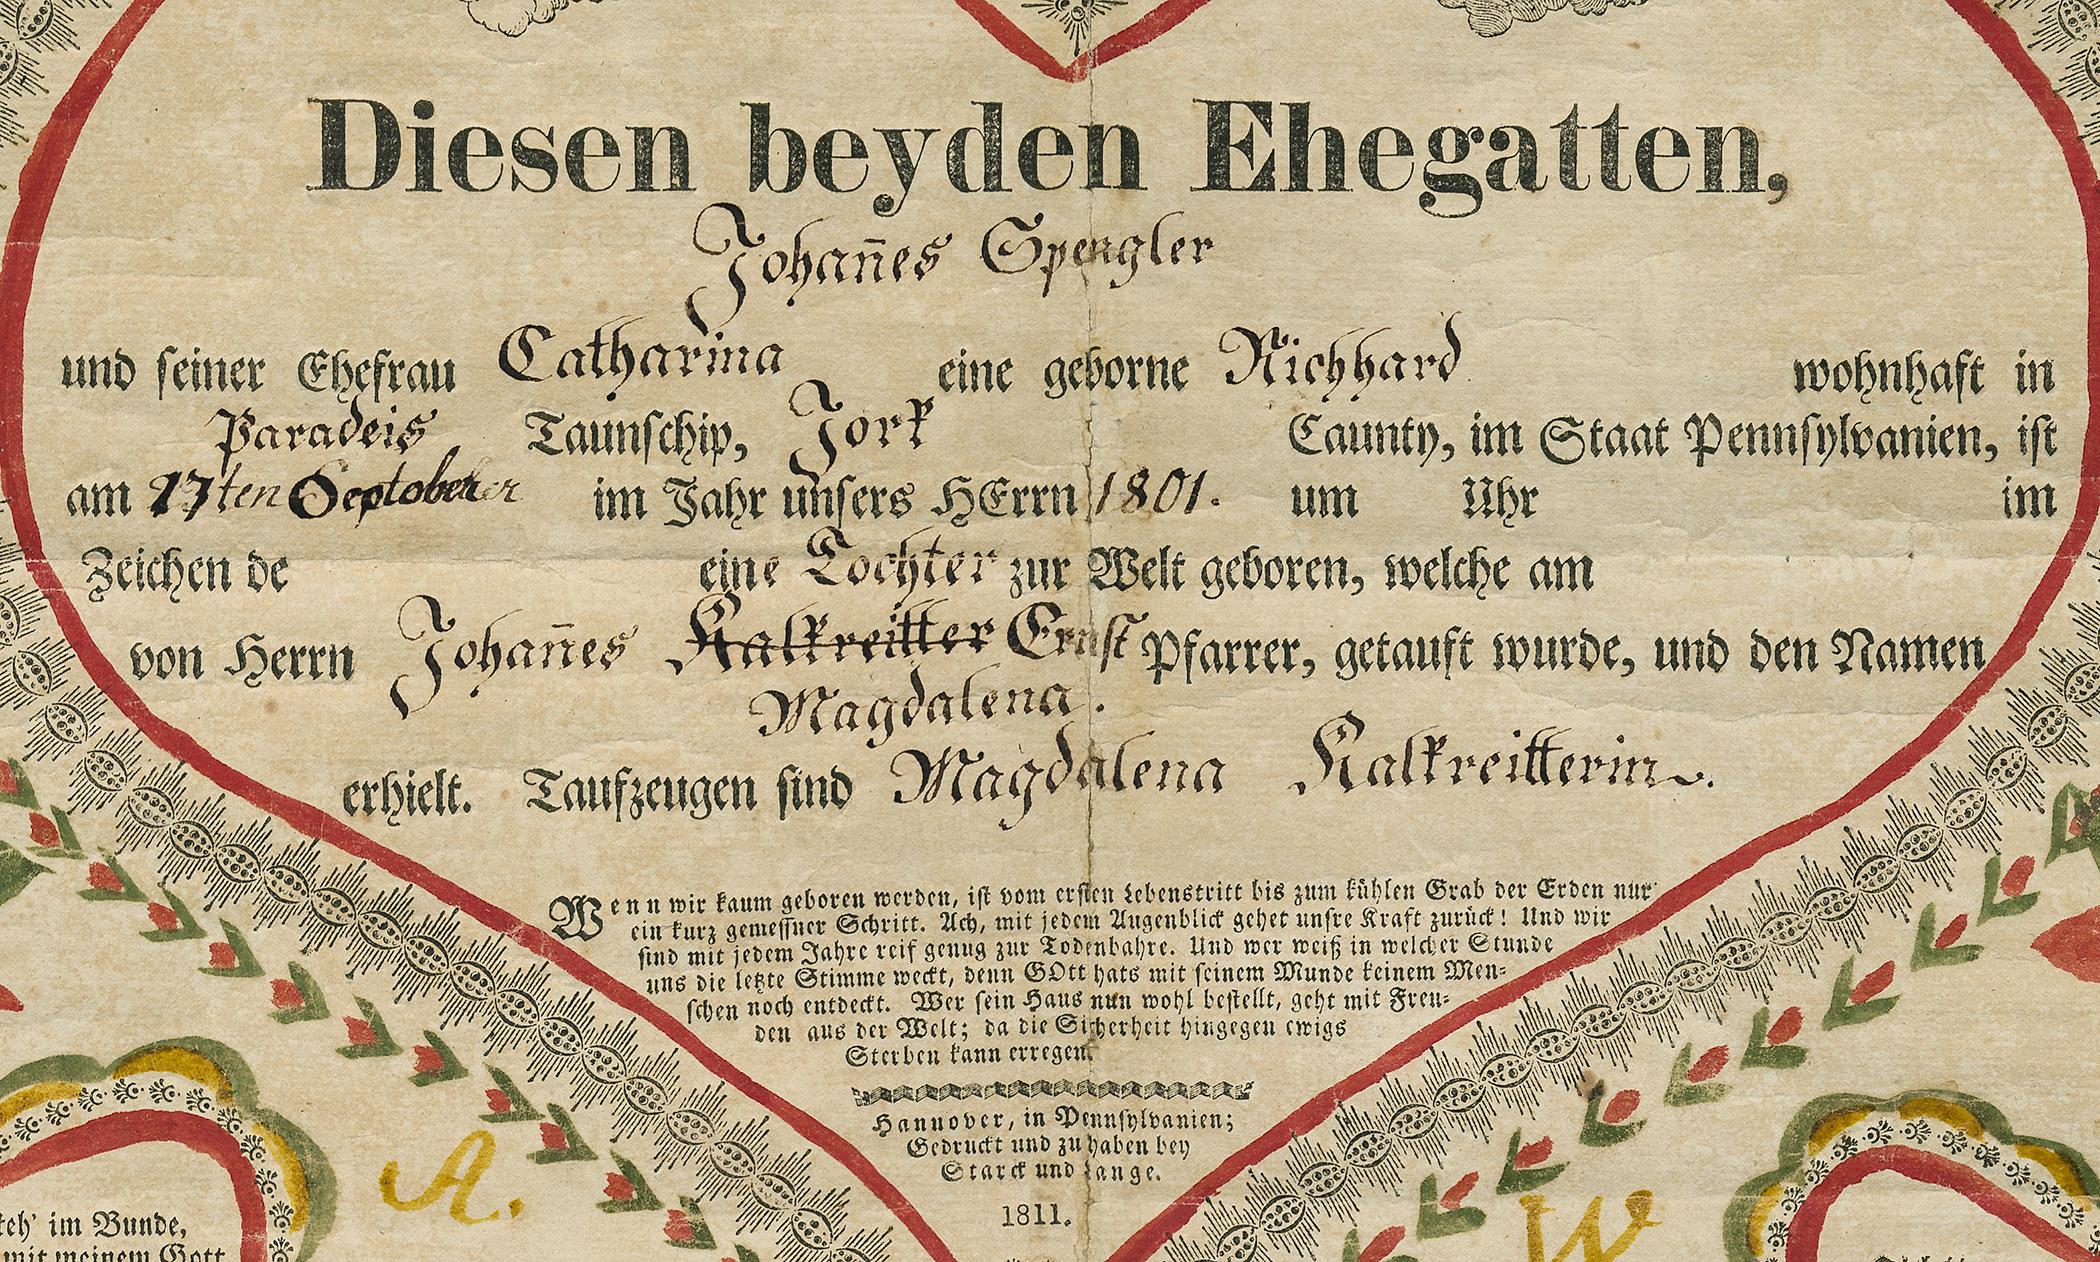 Diesen beyden Ehegatten,
Johan̄es Spengler
und seiner Ehefrau Catharina eine geborne Richhard wohnhaft in
Paradeis Taunschip, Jork Caunty, im Staat Pennsylvanien, ist
am 27ten im Jahr unsers HErrn 1801. um Uhr im
Zeichen de eine Tochter zur Welt geboren, welche am
von Herrn Johan̄es Kalkreitter Ernst Pfarrer, getauft wurde, und den Namen
Magdalena.
erhielt. Taufzeugen sind Magdalena Kalkreitterin.
Wenn wir kaum geboren werden, ist vom ersten Lebenstritt bis zum kühlen Grab der Erden nur
ein kurz gemeßner Schritt. Ach, mit jedem Augenblick gehet unsre Kraft zurück! Und wir
sind mit jedem Jahre reif genug zur Todenbahre. Und wer weiß in welcher Stunde
uns die letzte Stimme weckt, denn GOtt hats mit seinem Munde keinem Men-
schen noch entdeckt. Wer sein Haus nun wohl bestellt, geht mit Freu-
den aus der Welt; da die Sicherheit hingegen ewigs
Sterben kann erregen.
Hannover, in Pennsylvanien;
Gedruckt und zu haben bey
Starck und Lange.
1811.
A.
W
im Bunde,
mit meinem Gott